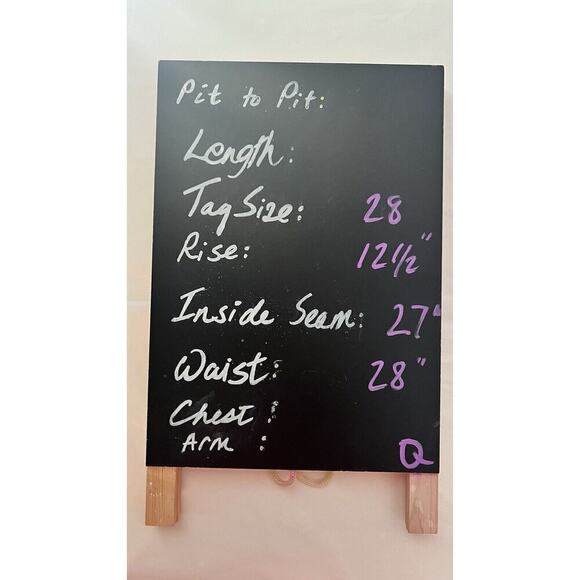 Pit to Pit:
Length:
Tag Size: 28
Rise: 12 1/2"
Inside Seam: 27"
Waist: 28"
Chest:
Arm:
Q